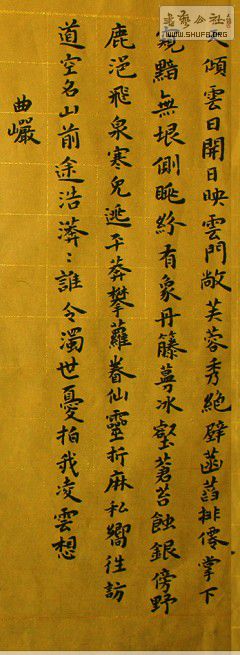 書藝公社
WWW.SHUFG.COM
傾雲日開日映雲門敞芙蓉秀絕壁菡萏排僊掌下
窺黯無垠側眺紛有象丹藤冰壑蒼苔蝕銀傍野
鹿浥飛泉寒兔逃平莽攀蘿眷仙靈折麻私嚮往訪
道空名山前途浩漭〻誰令濁世憂拍我凌雲想
曲巖